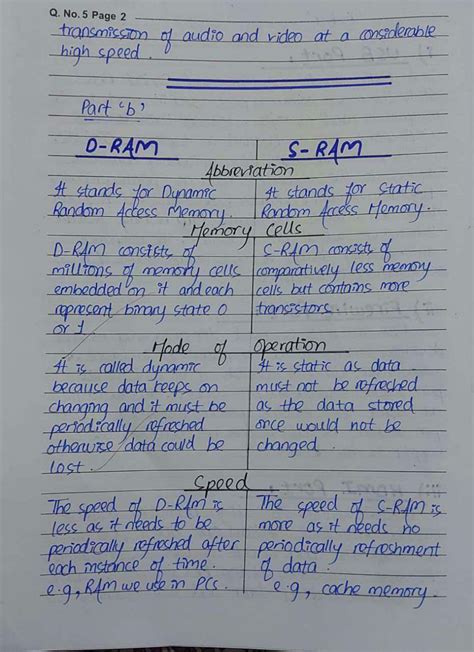 Q. No. 5 Page 2
transmission of audio and video at a considerable
high speed.
Part 'b'
D-RAM
S-RAM
Abbreviation
It stands for Dynamic
Random Access Memory.
It stands for Static
Random Access Memory.
Memory Cells
D-RAM consists of
millions of memory cells
embedded on it and each
represent binary state 0
or 1
S-RAM consists of
comparatively less memory
cells but contains more
transistors.
Mode of Operation
It is called dynamic
because data keeps on
changing and it must be
periodically refreshed
otherwise data could be
lost.
It is static as data
must not be refreshed
as the data stored
once would not be
changed.
Speed
The speed of D-RAM is
less as it needs to be
periodically refreshed after
each instance of time.
e.g, RAM we use in PCs.
The speed of S-RAM is
more as it needs no
periodically refreshment
of data.
e.g, cache memory.